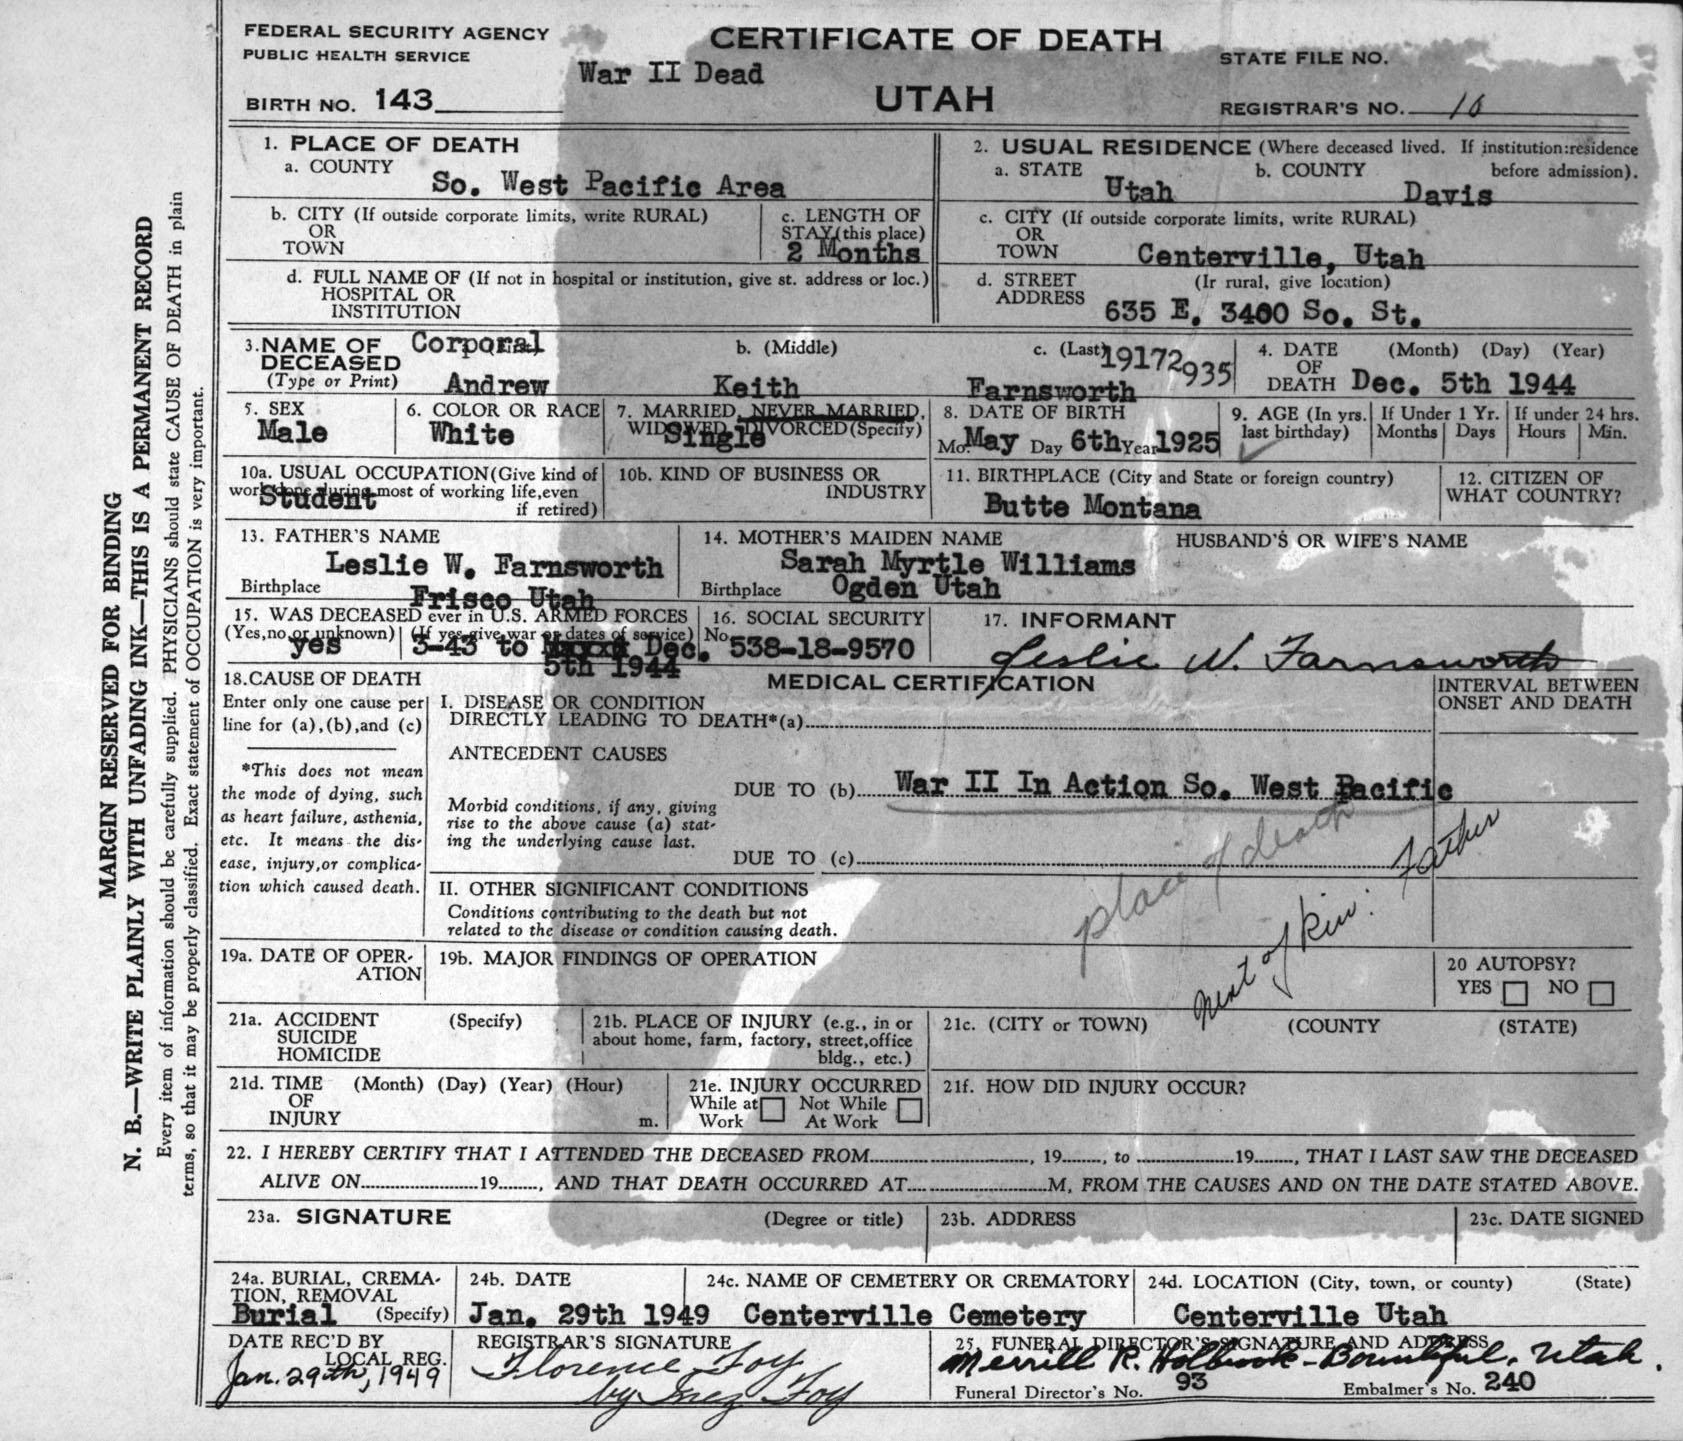 FEDERAL SECURITY AGENCY
PUBLIC HEALTH SERVICE
CERTIFICATE OF DEATH
War II Dead
UTAH
STATE FILE NO.
BIRTH NO. 143
REGISTRAR'S NO. 10
1. PLACE OF DEATH
a. COUNTY
So. West Pacific Area
2. USUAL RESIDENCE (Where deceased lived. If institution:residence before admission).
a. STATE Utah
b. COUNTY Davis
b. CITY (If outside corporate limits, write RURAL)
OR
TOWN
c. LENGTH OF
STAY (this place)
2 Months
c. CITY (If outside corporate limits, write RURAL)
OR
TOWN Centerville, Utah
d. FULL NAME OF (If not in hospital or institution, give st. address or loc.)
HOSPITAL OR
INSTITUTION
d. STREET (Ir rural, give location)
ADDRESS 635 E. 3400 So. St.
3. NAME OF
DECEASED
(Type or Print)
Corporal
b. (Middle)
c. (Last)
19172935
Andrew Keith Farnsworth
4. DATE (Month) (Day) (Year)
OF
DEATH Dec. 5th 1944
5. SEX
Male
6. COLOR OR RACE
White
7. MARRIED, NEVER MARRIED,
WIDOWED, DIVORCED (Specify)
Single
8. DATE OF BIRTH
Mo. May Day 6th Year 1925
9. AGE (In yrs.
last birthday)
If Under 1 Yr.
Months Days
If under 24 hrs.
Hours Min.
10a. USUAL OCCUPATION (Give kind of
work done during most of working life, even
if retired)
Student
10b. KIND OF BUSINESS OR
INDUSTRY
11. BIRTHPLACE (City and State or foreign country)
Butte Montana
12. CITIZEN OF
WHAT COUNTRY?
13. FATHER'S NAME
Leslie W. Farnsworth
Birthplace
Frisco Utah
14. MOTHER'S MAIDEN NAME
Sarah Myrtle Williams
Birthplace Ogden Utah
HUSBAND'S OR WIFE'S NAME
15. WAS DECEASED ever in U.S. ARMED FORCES
(Yes,no or unknown) (If yes give war or dates of service)
yes 3-43 to Dec.
5th 1944
16. SOCIAL SECURITY
No. 538-18-9570
17. INFORMANT
Leslie W. Farnsworth
18. CAUSE OF DEATH
Enter only one cause per
line for (a),(b),and (c)
*This does not mean
the mode of dying, such
as heart failure, asthenia,
etc. It means the dis-
ease, injury,or complica-
tion which caused death.
MEDICAL CERTIFICATION
I. DISEASE OR CONDITION
DIRECTLY LEADING TO DEATH*(a)
INTERVAL BETWEEN
ONSET AND DEATH
ANTECEDENT CAUSES
DUE TO (b) War II In Action So. West Pacific
Morbid conditions, if any, giving
rise to the above cause (a) stat-
ing the underlying cause last.
DUE TO (c)
place of death
next of kin: Father
II. OTHER SIGNIFICANT CONDITIONS
Conditions contributing to the death but not
related to the disease or condition causing death.
19a. DATE OF OPER-
ATION
19b. MAJOR FINDINGS OF OPERATION
20 AUTOPSY?
YES NO
21a. ACCIDENT (Specify)
SUICIDE
HOMICIDE
21b. PLACE OF INJURY (e.g., in or
about home, farm, factory, street,office
bldg., etc.)
21c. (CITY or TOWN) (COUNTY (STATE)
21d. TIME (Month) (Day) (Year) (Hour)
OF
INJURY m.
21e. INJURY OCCURRED
While at Not While
Work At Work
21f. HOW DID INJURY OCCUR?
22. I HEREBY CERTIFY THAT I ATTENDED THE DECEASED FROM, 19, to 19, THAT I LAST SAW THE DECEASED
ALIVE ON 19, AND THAT DEATH OCCURRED AT M, FROM THE CAUSES AND ON THE DATE STATED ABOVE.
23a. SIGNATURE (Degree or title)
23b. ADDRESS
23c. DATE SIGNED
24a. BURIAL, CREMA-
TION, REMOVAL
Burial (Specify)
24b. DATE
Jan. 29th 1949
24c. NAME OF CEMETERY OR CREMATORY
Centerville Cemetery
24d. LOCATION (City, town, or county) (State)
Centerville Utah
DATE REC'D BY
LOCAL REG.
Jan. 29th, 1949
REGISTRAR'S SIGNATURE
Florence Foy
by Inez Foy
25. FUNERAL DIRECTOR'S SIGNATURE AND ADDRESS
Merrill R. Holbrook - Bountiful, Utah.
Funeral Director's No. 93
Embalmer's No. 240
MARGIN RESERVED FOR BINDING
N. B.—WRITE PLAINLY WITH UNFADING INK—THIS IS A PERMANENT RECORD
Every item of information should be carefully supplied. PHYSICIANS should state CAUSE OF DEATH in plain
terms, so that it may be properly classified. Exact statement of OCCUPATION is very important.